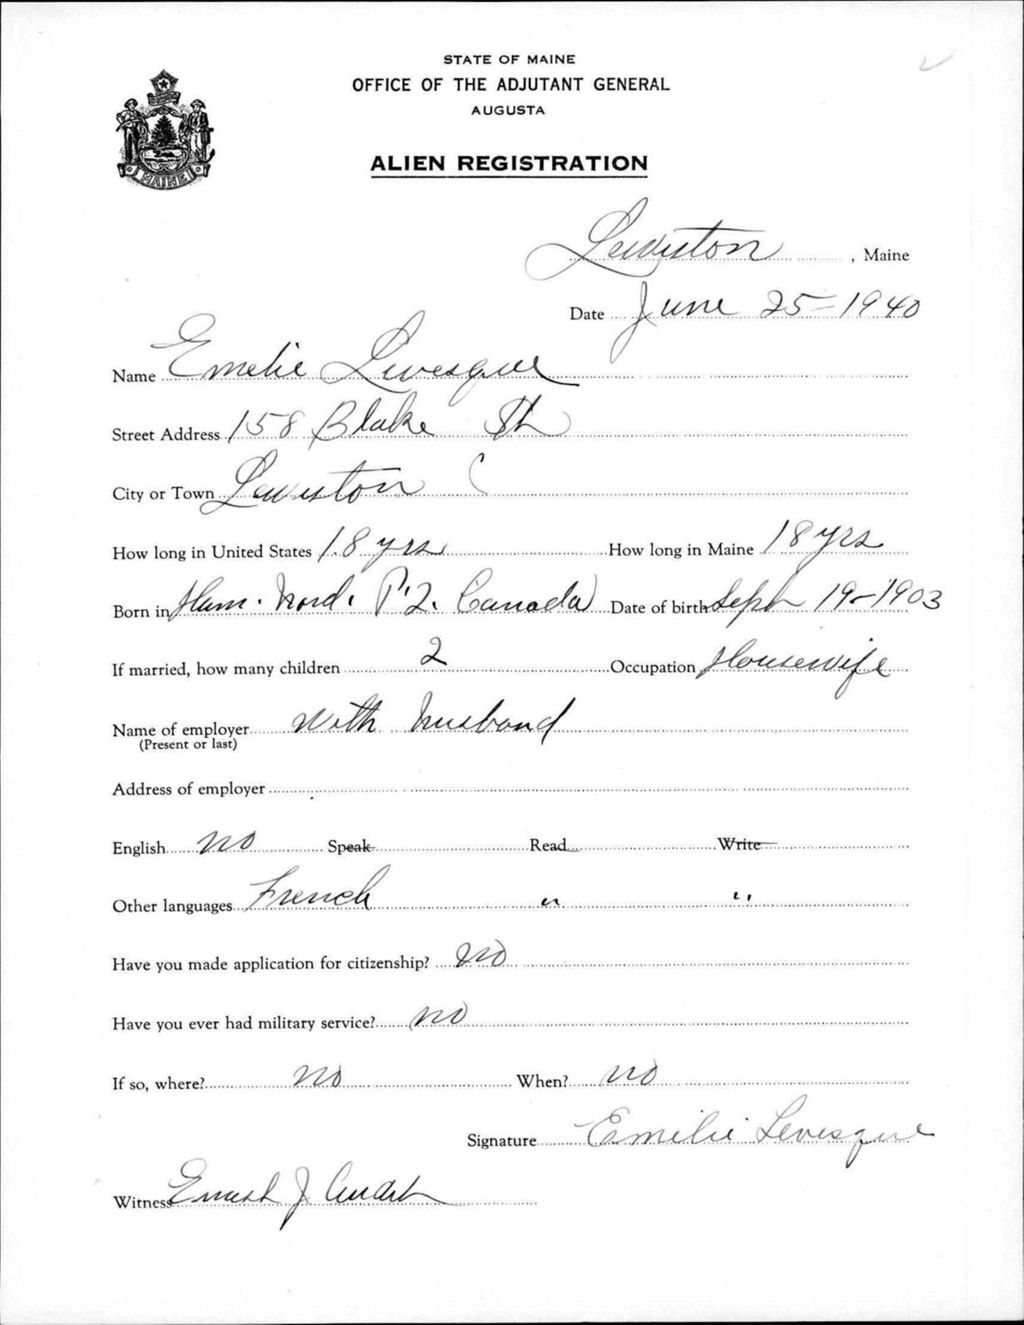 STATE OF MAINE
OFFICE OF THE ADJUTANT GENERAL
AUGUSTA
MAINE
ALIEN REGISTRATION
Lewiston, Maine
Date June 25-1940
Name Emelie Levesque
Street Address 158 Blake St
City or Town Lewiston
How long in United States 18 yrs How long in Maine 18 yrs
Born in Ham. Nord. P.Q. Canada Date of birth Sept 19-1903
If married, how many children 2 Occupation Housewife
Name of employer With husband
(Present or last)
Address of employer
English no Speak Read Write
Other languages French " "
Have you made application for citizenship? no
Have you ever had military service? no
If so, where? no When? no
Signature Emilie Levesque
Witness Ernest J